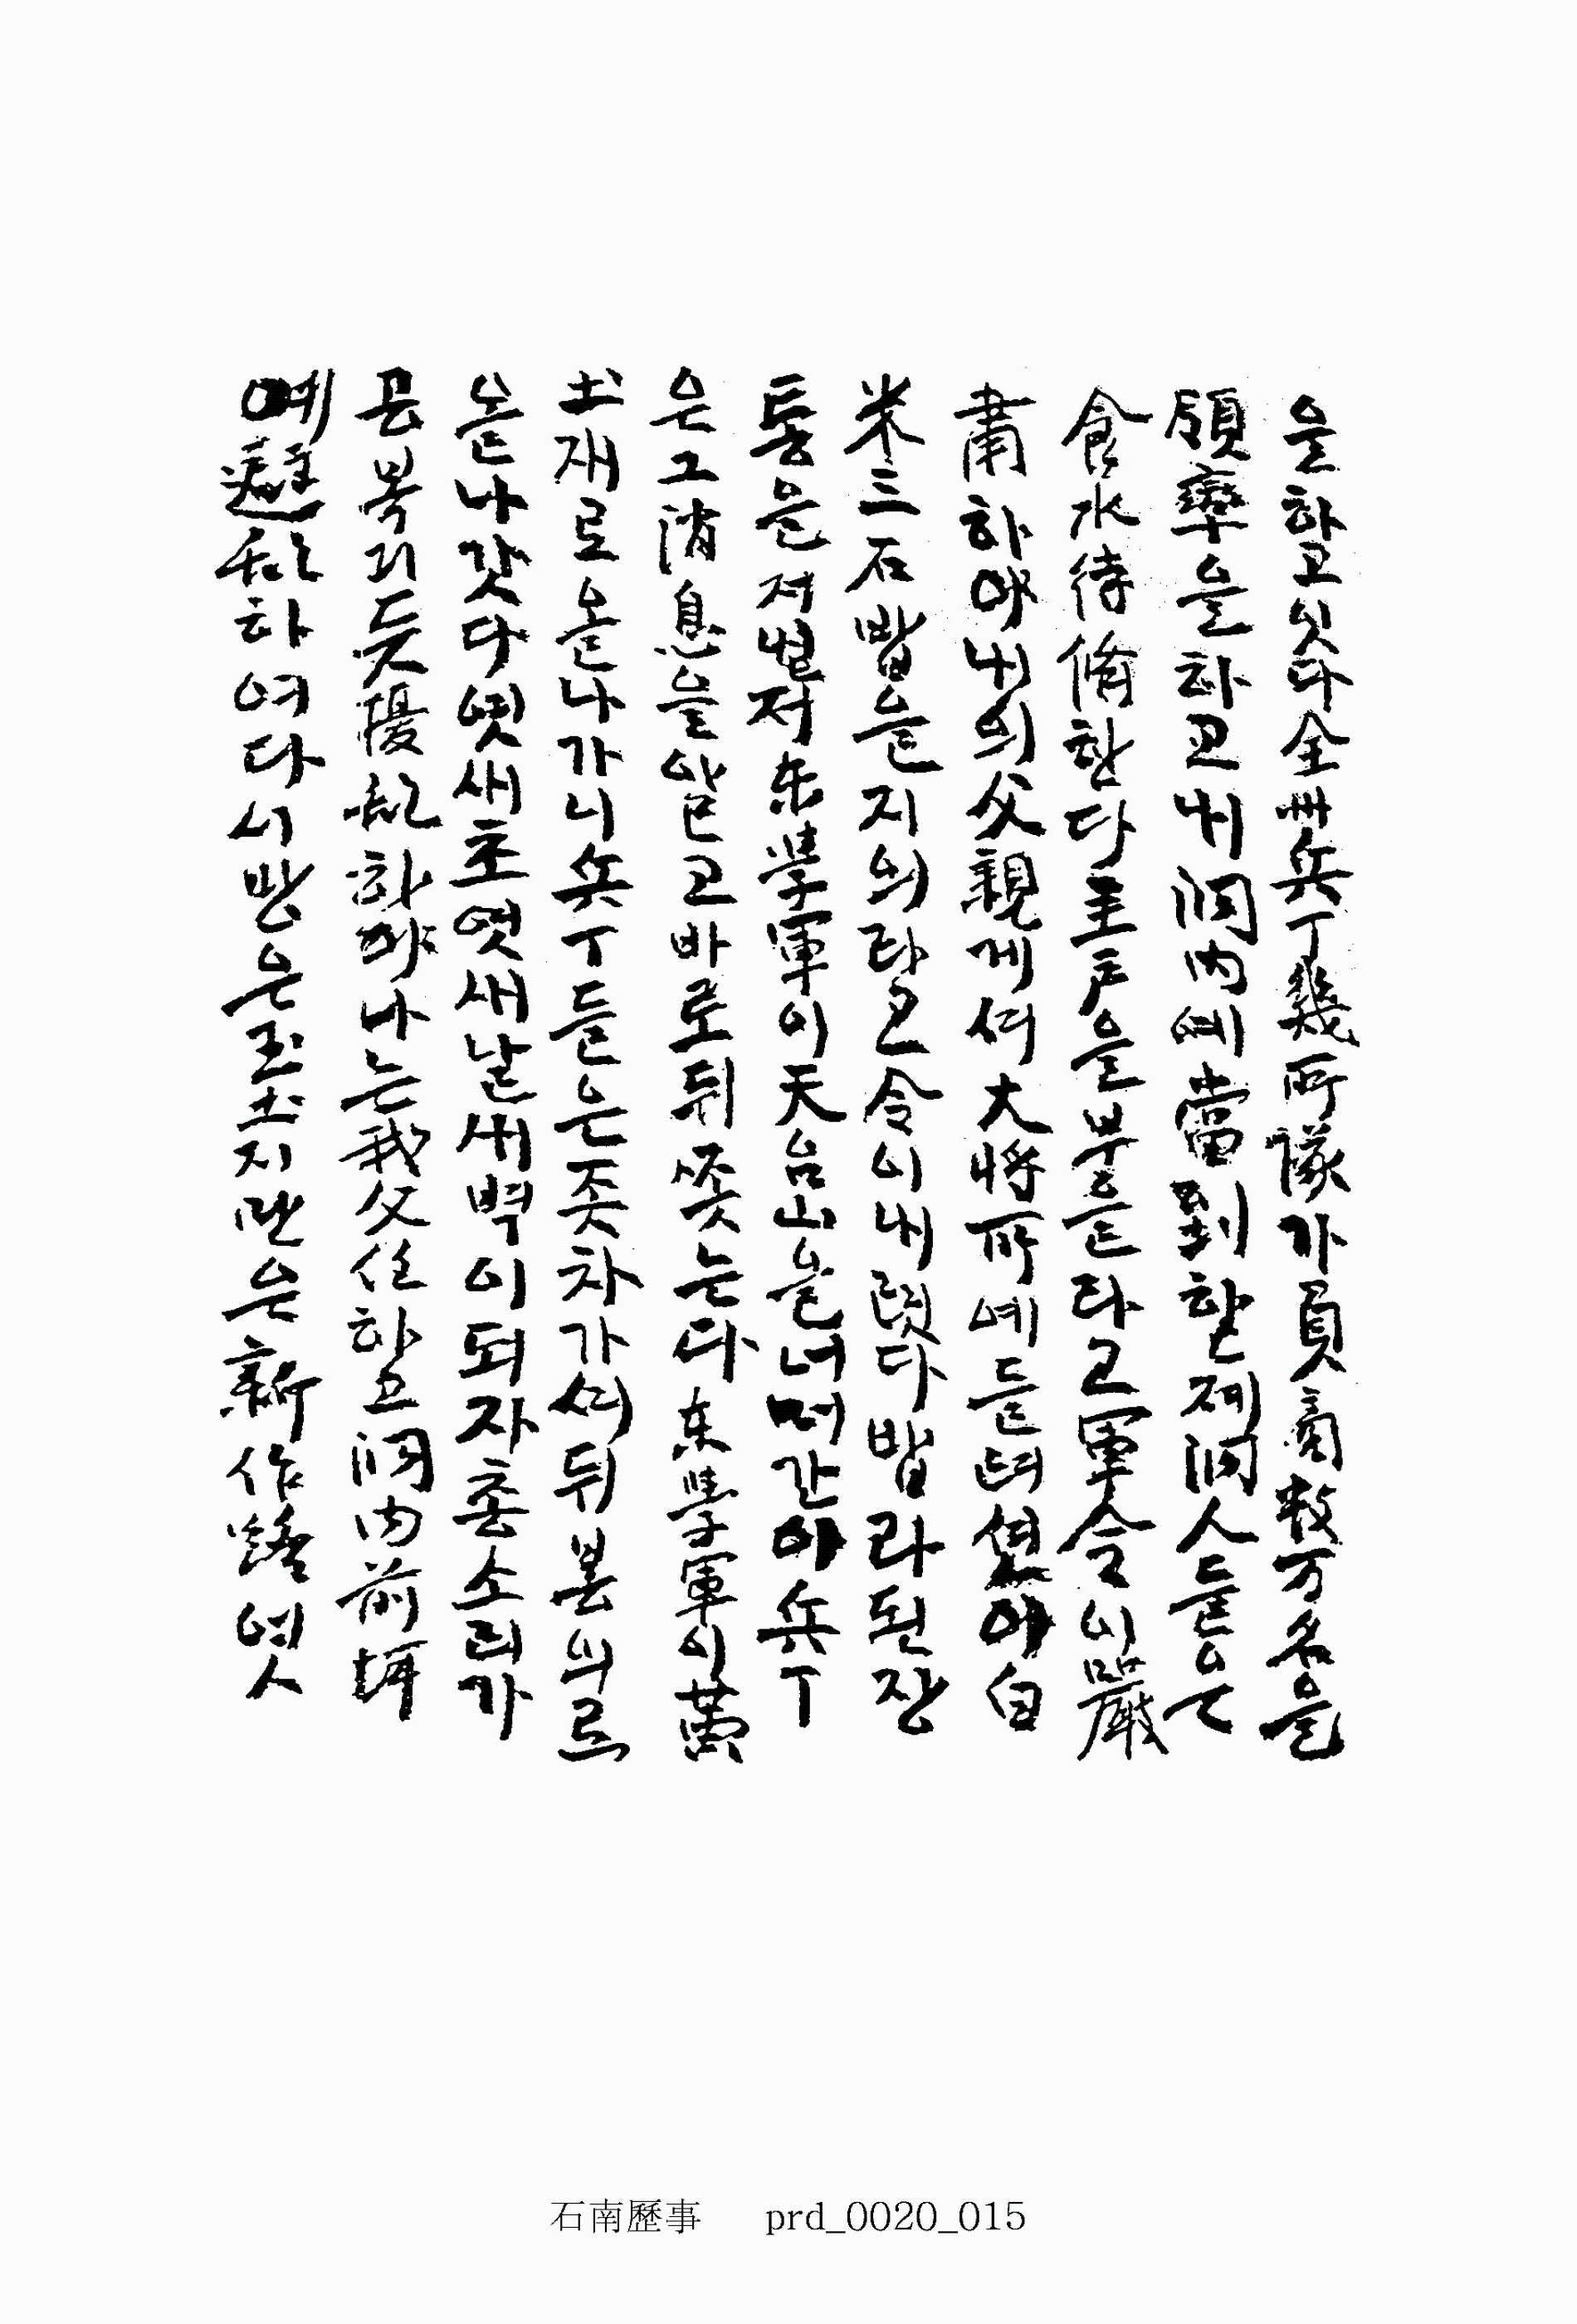 을하고잇다全州兵丁幾所隊가員商数万名을
領率을하고내洞内예當到할제洞人들은
食水待俻한다主戶을부른다고軍令이嚴
肅하야내의父親게셔大将所예들어셧야白
米三石밥을지의라고令이내렷다밥라된장
통을져벌저东學軍이天台山을너머간야兵丁
은그消息을알고바로뒤쫏는다东學軍이黄
土재로올나가니兵丁들은좃차가셔뒤봉의로
올나갓다엿새초엿새날새벽이되자총소리가
콩복기듯擾乱하야나는我父任하고洞内前坪
예避乱하여다시방은玉土지만은新作路엿
石南歷事 prd_0020_015